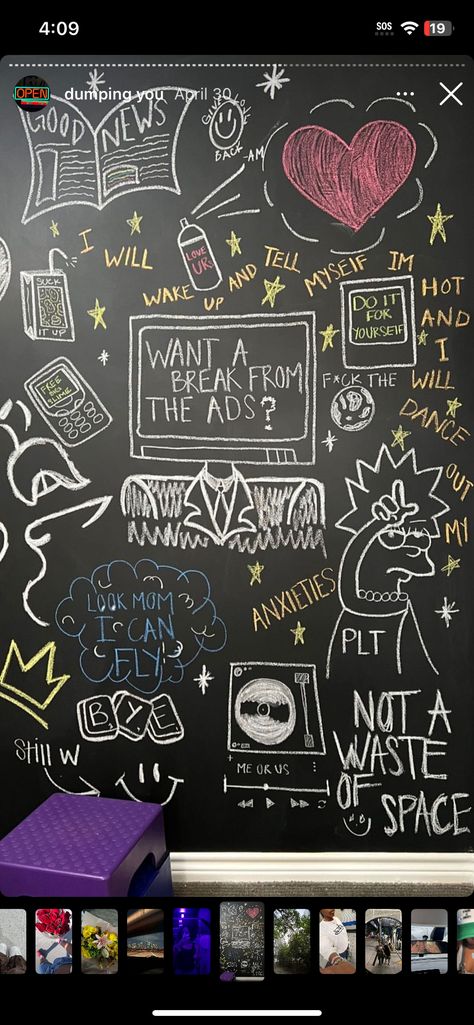 4:09
SOS
19
OPEN
dumping you April 30
GOOD NEWS
GIVE LOVE
BACK
-AM
LOVE
UR
I WILL
WAKE UP AND TELL MYSELF IM HOT AND I WILL DANCE OUT MI ANXIETIES
SUCK
IT UP
DO IT
FOR
YOURSELF
WANT A
BREAK FROM
THE ADS?
F*CK THE
FREE
BIG
SLIME
LOOK MOM
I CAN
FLY!
PLT
BYE
Still W
ME OR US
NOT A
WASTE
OF
SPACE